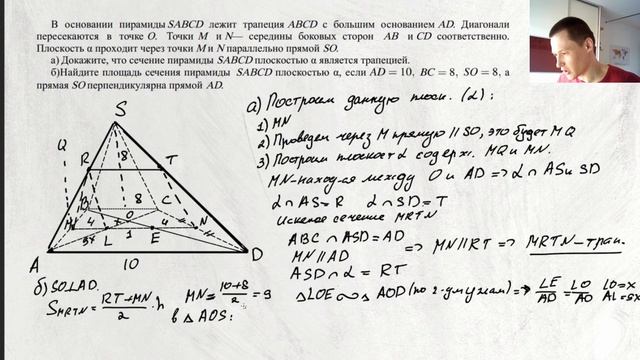 В основании пирамиды SABCD лежит трапеция ABCD с большим основанием AD. Диагонали
пересекаются в точке O. Точки M и N— середины боковых сторон AB и CD соответственно.
Плоскость α проходит через точки M и N параллельно прямой SO.
а) Докажите, что сечение пирамиды SABCD плоскостью α является трапецией.
б)Найдите площадь сечения пирамиды SABCD плоскостью α, если AD = 10, BC = 8, SO = 8, а
прямая SO перпендикулярна прямой AD.
а) Построим данную плоск. (α):
1) MN
2) Проведем через M прямую || SO, это будет MQ
3) Построим плоскост α содерж. MQ и MN.
MN-наход-ся между O и AD => α ∩ AS и SD
α ∩ AS = R α ∩ SD = T
Искомое сечение MRTN
ABC ∩ ASD = AD
MN || AD
ASD ∩ α = RT
=> MN || RT => MRTN-трап.
S
Q
R
8
T
B
8
C
M
4
x
O
4
N
5x
L
1
E
A
10
D
б) SO⊥AD.
S MRTN = RT+MN / 2 · h
MN = 10+8 / 2 = 9
в △ AOS:
△ LOE ∾ △ AOD (по 2-ум углам) => LE / AD = LO / AO
LO=x
AL=5x